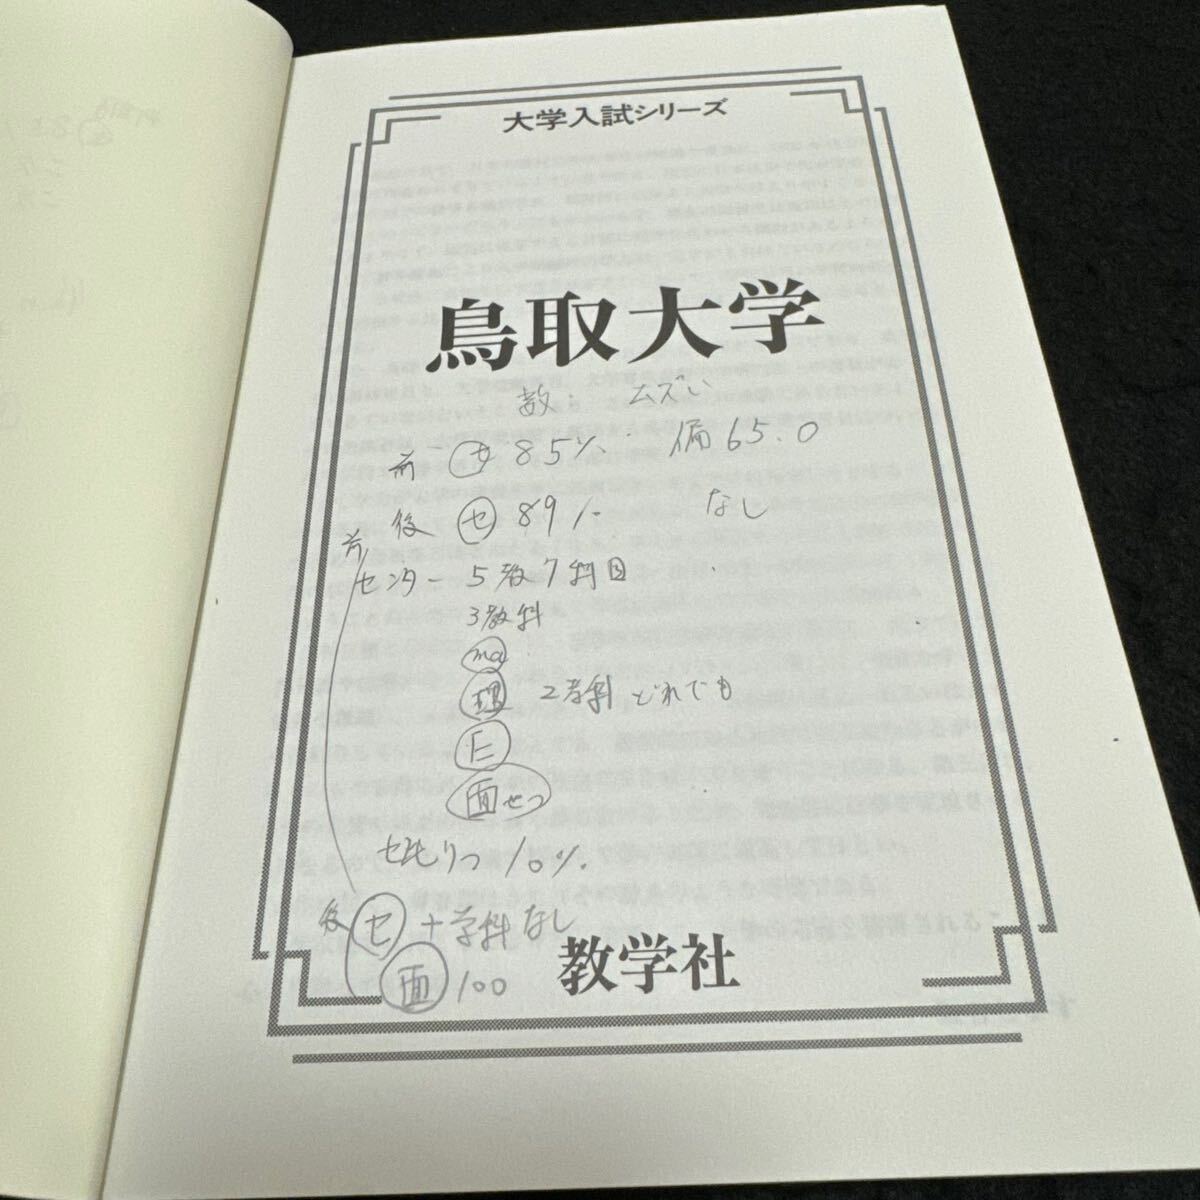 大学入試シリーズ
鳥取大学
数: ムズい
前 セ 85% 偏65.0
後 セ 89% なし
前
センター 5教7科目
3教科
ma
理 2学科 どれでも
E
面せつ
10%
後 セ + 学科なし
面 100
教学社